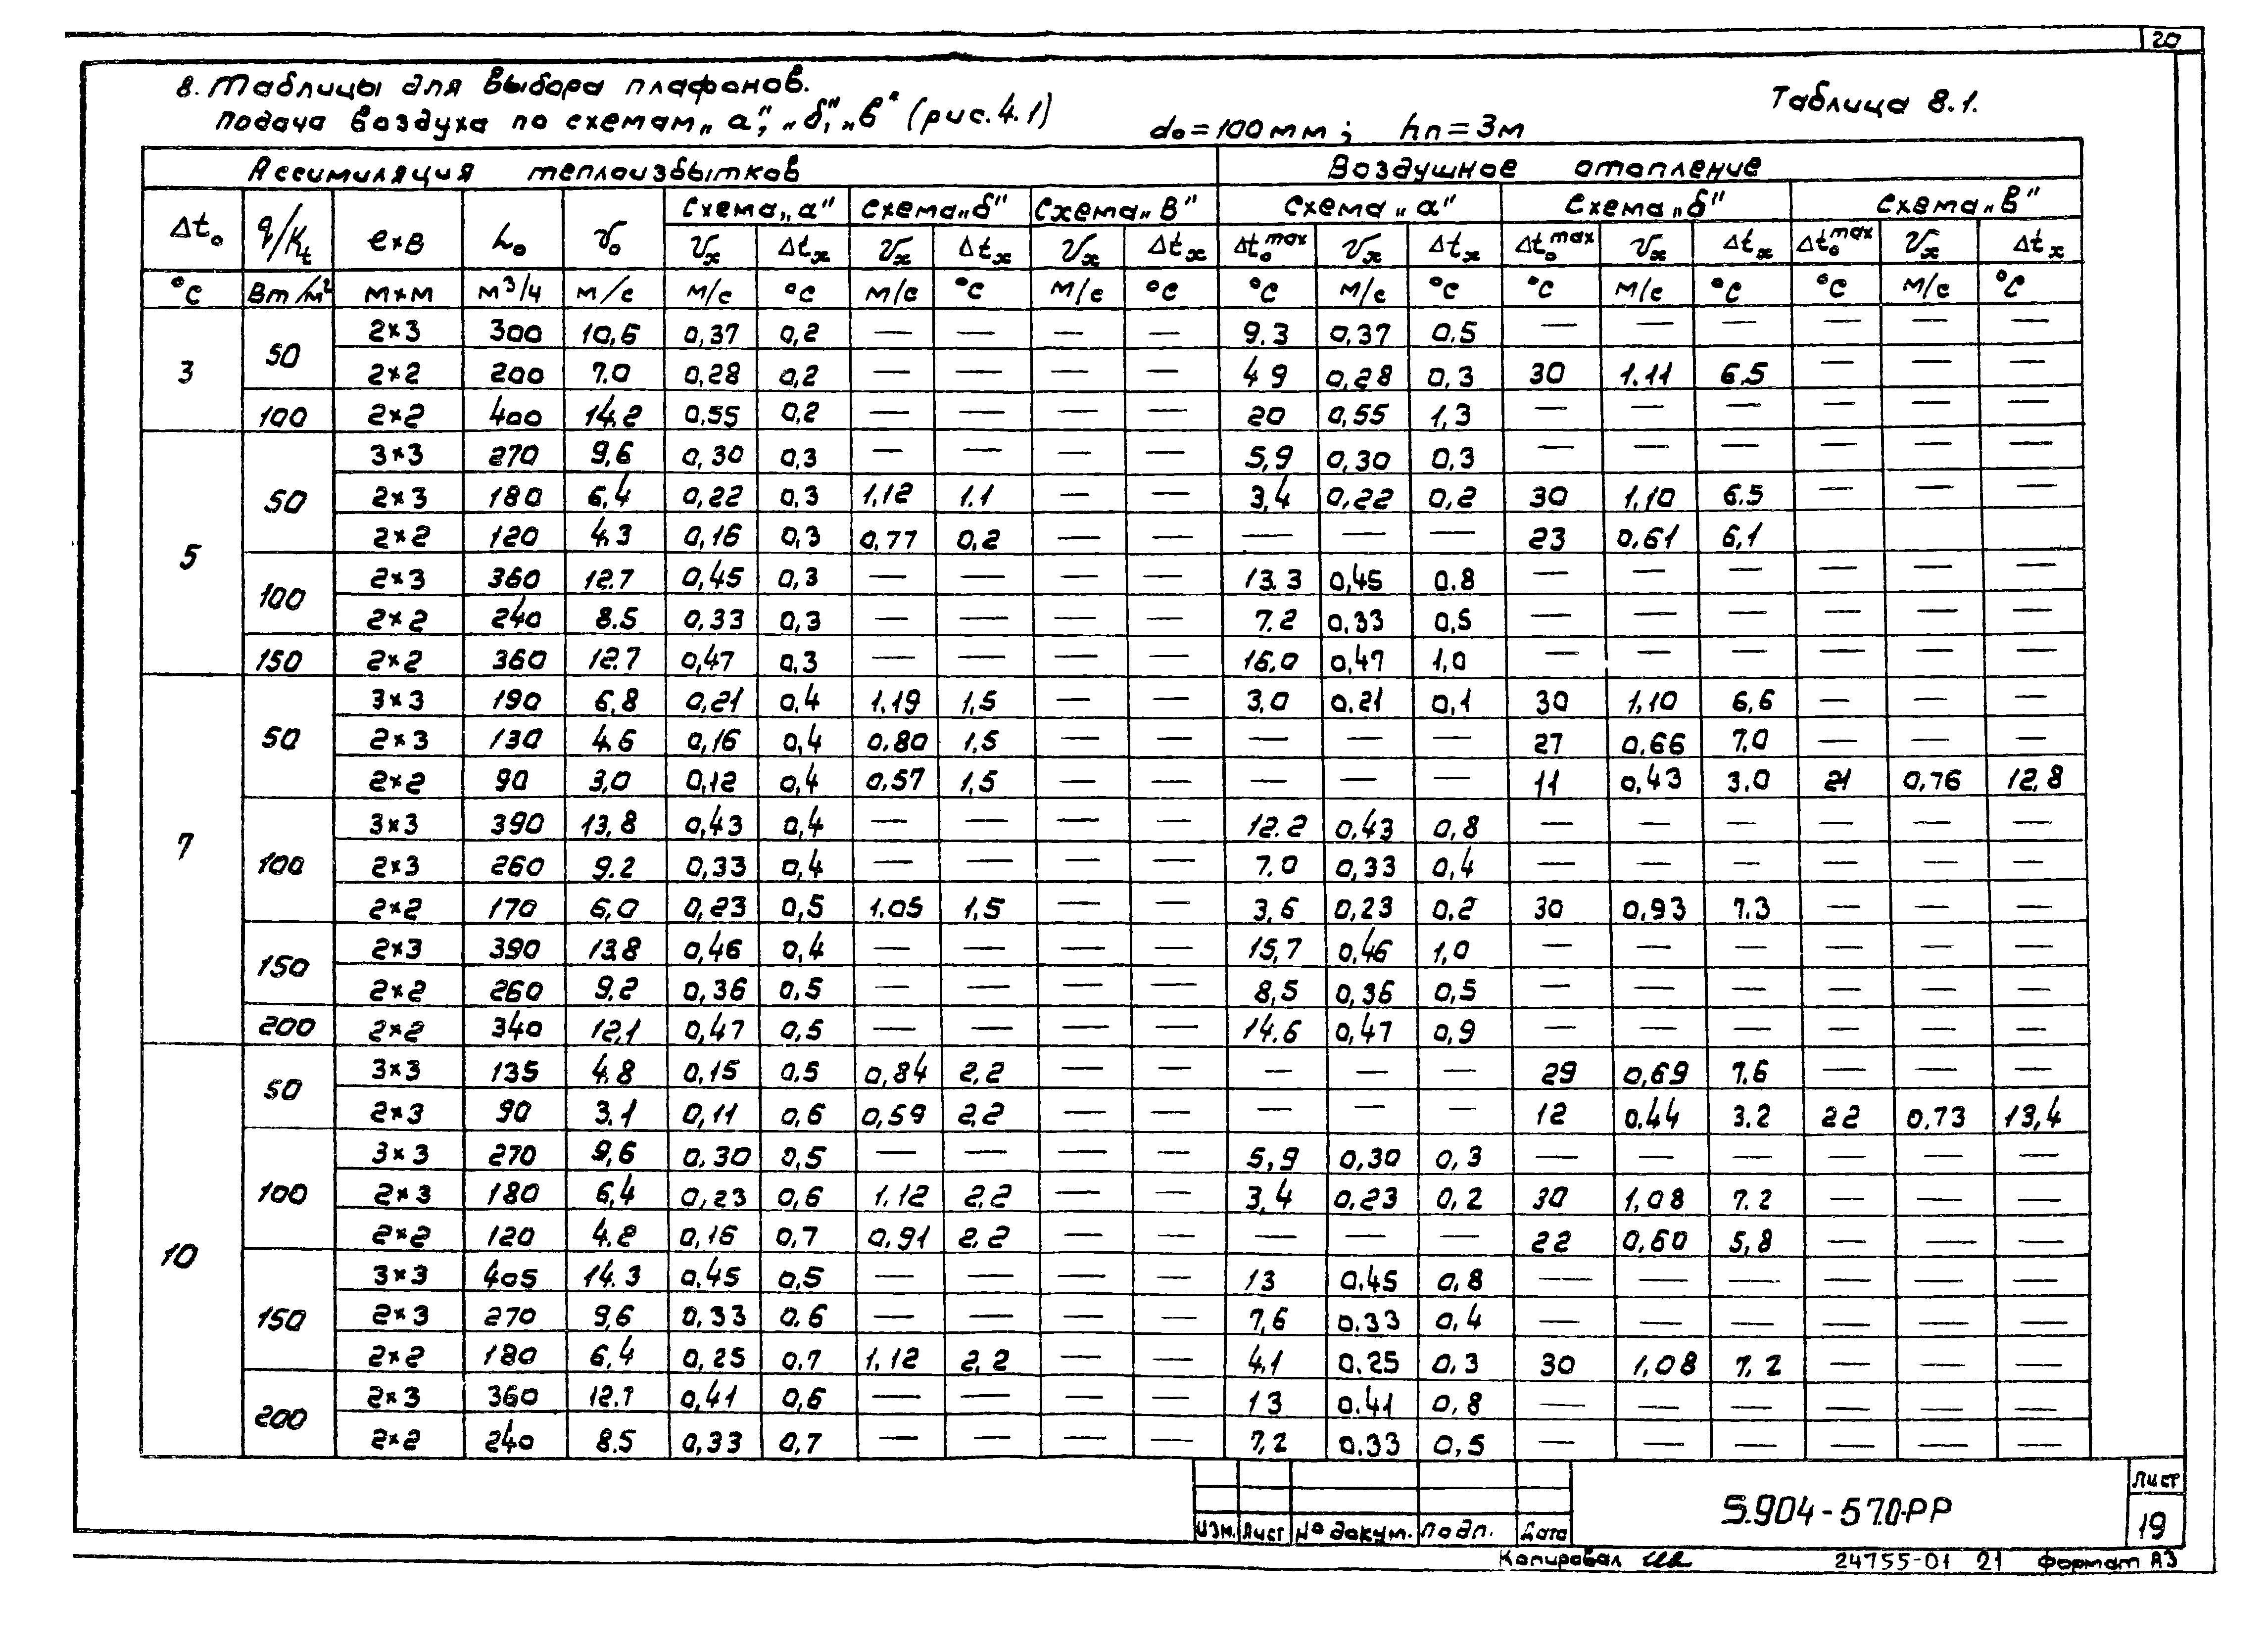 20
8. Таблицы для выбора плафонов.
Подача воздуха по схемам „а", „б", „в" (рис. 4.1)
Таблица 8.1.
d₀=100мм; hп=3м
Ассимиляция теплоизбытков Воздушное отопление
Схема „а" Схема „б" Схема „в" Схема „а" Схема „б" Схема „в"
Δt₀ q/Kt ℓ×в L₀ v₀ vx Δtx vx Δtx vx Δtx Δt₀max vx Δtx Δt₀max vx Δtx Δt₀max vx Δtx
°С Вт/м² м×м м³/ч м/с м/с °С м/с °С м/с °С °С м/с °С °С м/с °С °С м/с °С
3 50 2×3 300 10,6 0,37 0,2 — — — — 9.3 0,37 0.5 — — — — — —
2×2 200 7.0 0,28 0,2 — — — — 49 0,28 0,3 30 1.11 6,5 — — —
100 2×2 400 14,2 0,55 0,2 — — — — 20 0,55 1,3 — — — — — —
5 50 3×3 270 9,6 0,30 0,3 — — — — 5,9 0,30 0,3 — — — — — —
2×3 180 6,4 0,22 0,3 1,12 1.1 — — 3,4 0,22 0,2 30 1,10 6.5 — — —
2×2 120 4,3 0,16 0,3 0,77 0,2 — — — — — 23 0,61 6,1
100 2×3 360 12.7 0,45 0,3 — — — — 13.3 0,45 0.8 — — — — — —
2×2 240 8.5 0,33 0,3 — — — — 7.2 0,33 0,5 — — — — — —
150 2×2 360 12.7 0,47 0,3 — — — — 16.0 0,47 1,0 — — — — — —
7 50 3×3 190 6,8 0,21 0,4 1.19 1,5 — — 3,0 0.21 0,1 30 1,10 6,6 — — —
2×3 130 4,6 0,16 0,4 0,80 1,5 — — — — — 27 0,66 7,0 — — —
2×2 90 3,0 0,12 0,4 0,57 1,5 — — — — — 11 0,43 3.0 21 0,76 12,8
100 3×3 390 13,8 0,43 0,4 — — — — 12.2 0,43 0,8 — — — — — —
2×3 260 9.2 0,33 0,4 — — — — 7.0 0,33 0,4 — — — — — —
2×2 170 6,0 0,23 0,5 1,05 1,5 — — 3,6 0,23 0.2 30 0,93 7.3 — — —
150 2×3 390 13,8 0,46 0,4 — — — — 15,7 0,46 1,0 — — — — — —
2×2 260 9,2 0,36 0.5 — — — — 8,5 0,36 0,5 — — — — — —
200 2×2 340 12,1 0,47 0,5 — — — — 14.6 0,47 0,9 — — — — — —
10 50 3×3 135 4.8 0,15 0.5 0,84 2,2 — — — — — 29 0,69 7.6 — — —
2×3 90 3.1 0,11 0,6 0,59 2,2 — — — — — 12 0.44 3.2 22 0,73 13,4
100 3×3 270 9,6 0.30 0,5 — — — — 5,9 0,30 0,3 — — — — — —
2×3 180 6,4 0,23 0,6 1.12 2,2 — — 3,4 0.23 0,2 30 1,08 7.2 — — —
2×2 120 4.2 0,16 0,7 0.91 2.2 — — — — — 22 0,60 5,8 — — —
150 3×3 405 14.3 0,45 0,5 — — — — 13 0.45 0,8 — — — — — —
2×3 270 9,6 0,33 0.6 — — — — 7,6 0.33 0,4 — — — — — —
2×2 180 6,4 0,25 0.7 1.12 2,2 — — 4,1 0.25 0,3 30 1,08 7,2 — — —
200 2×3 360 12.7 0,41 0,6 — — — — 13 0.41 0,8 — — — — — —
2×2 240 8.5 0,33 0,7 — — — — 7,2 0.33 0,5 — — — — — —
Изм. Лист № докум. Подп. Дата
5.904-57.0-РР
Лист
19
Копировал
24755-01 21 Формат А3